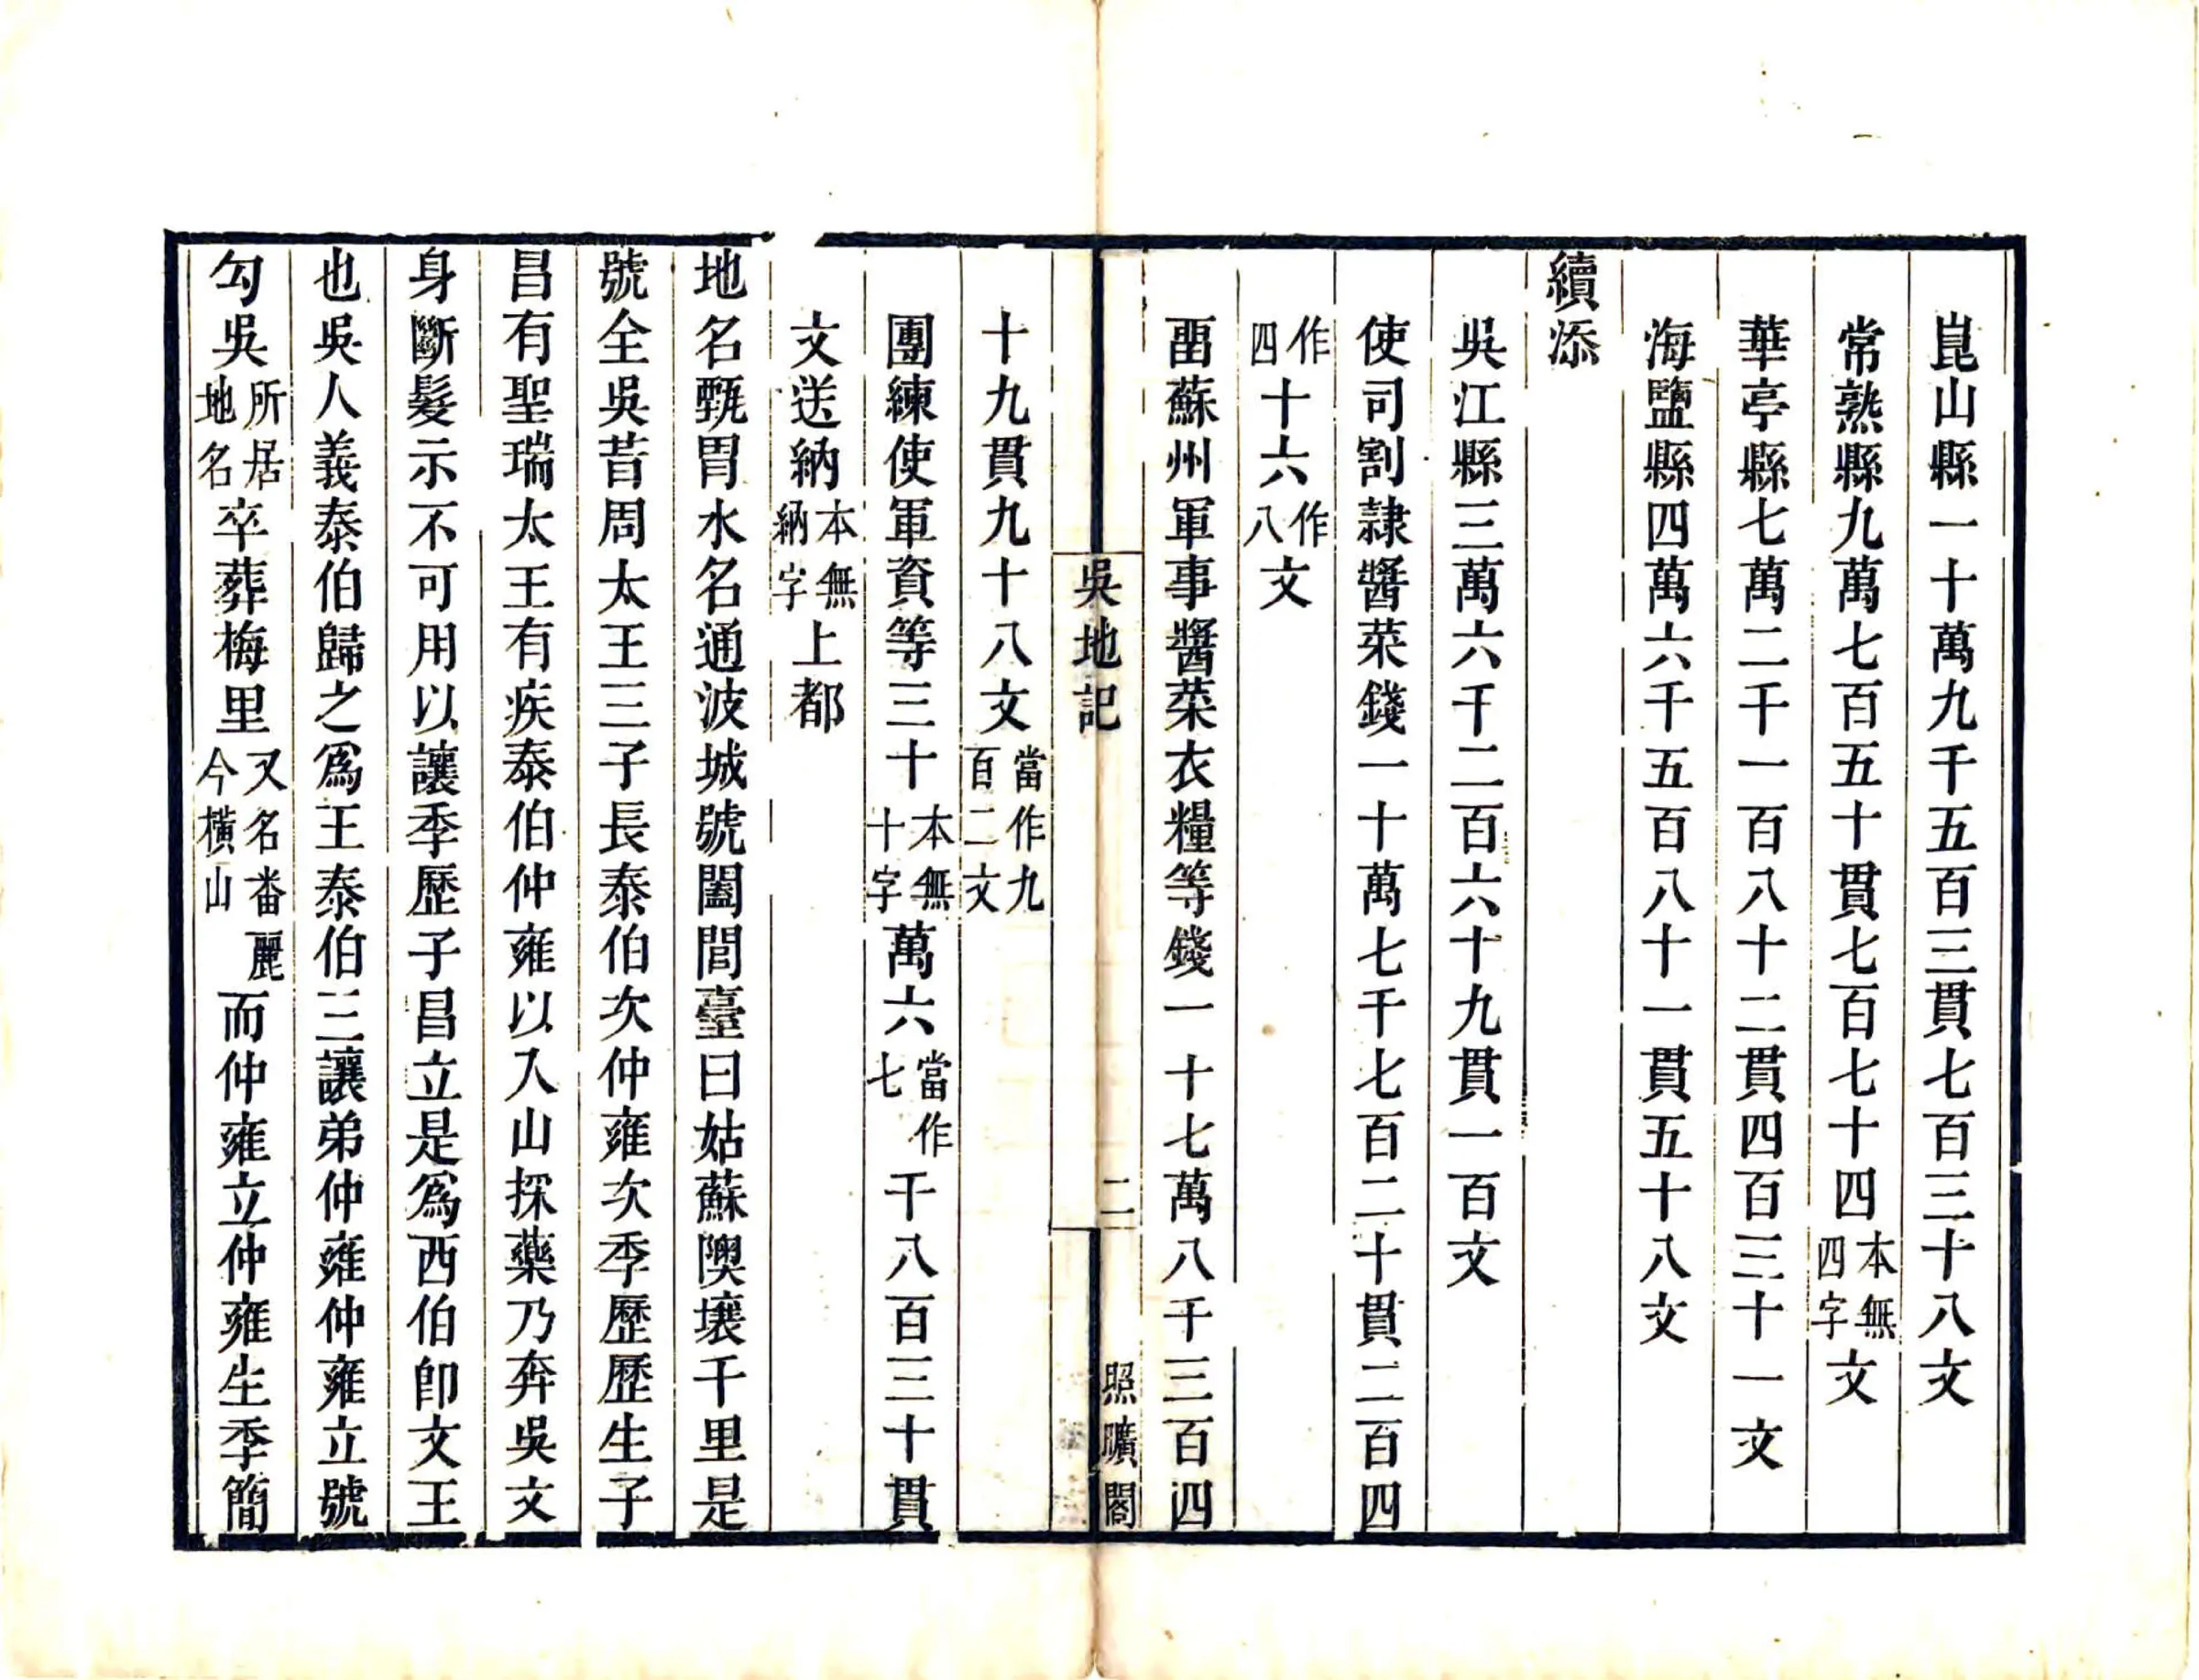 崑山縣一十萬九千五百三貫七百三十八文
常熟縣九萬七百五十貫七百七十四本無四字文
華亭縣七萬二千一百八十二貫四百三十一文
海鹽縣四萬六千五百八十一貫五十八文
續添
吳江縣三萬六千二百六十九貫一百文
使司割隷醬菜錢一十萬七千七百二十貫二百四
作四十六作八文
畱蘇州軍事醬菜衣糧等錢一十七萬八千三百四
吳地記 二 照曠閣
十九貫九十八文當作九百二文
團練使軍資等三十本無十字萬六當作七千八百三十貫
文送納本無納字上都
地名甄胃水名通波城號闔閭臺曰姑蘇隩壤千里是
號全吳昔周太王三子長泰伯次仲雍次季歷歷生子
昌有聖瑞太王有疾泰伯仲雍以入山採藥乃奔吳文
身斷髮示不可用以讓季歷子昌立是爲西伯卽文王
也吳人義泰伯歸之爲王泰伯三讓弟仲雍仲雍立號
勾吳所居地名卒葬梅里又名畨麗今橫山而仲雍立仲雍生季簡